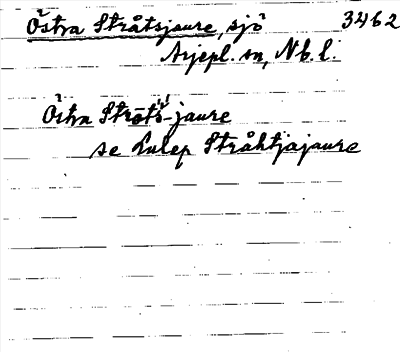 Östra Stråtsjaure, sjö 3462
Arjepl. sn, Nb. l.
Östra Stråts-jaure
se Lulep Stråktjajaure